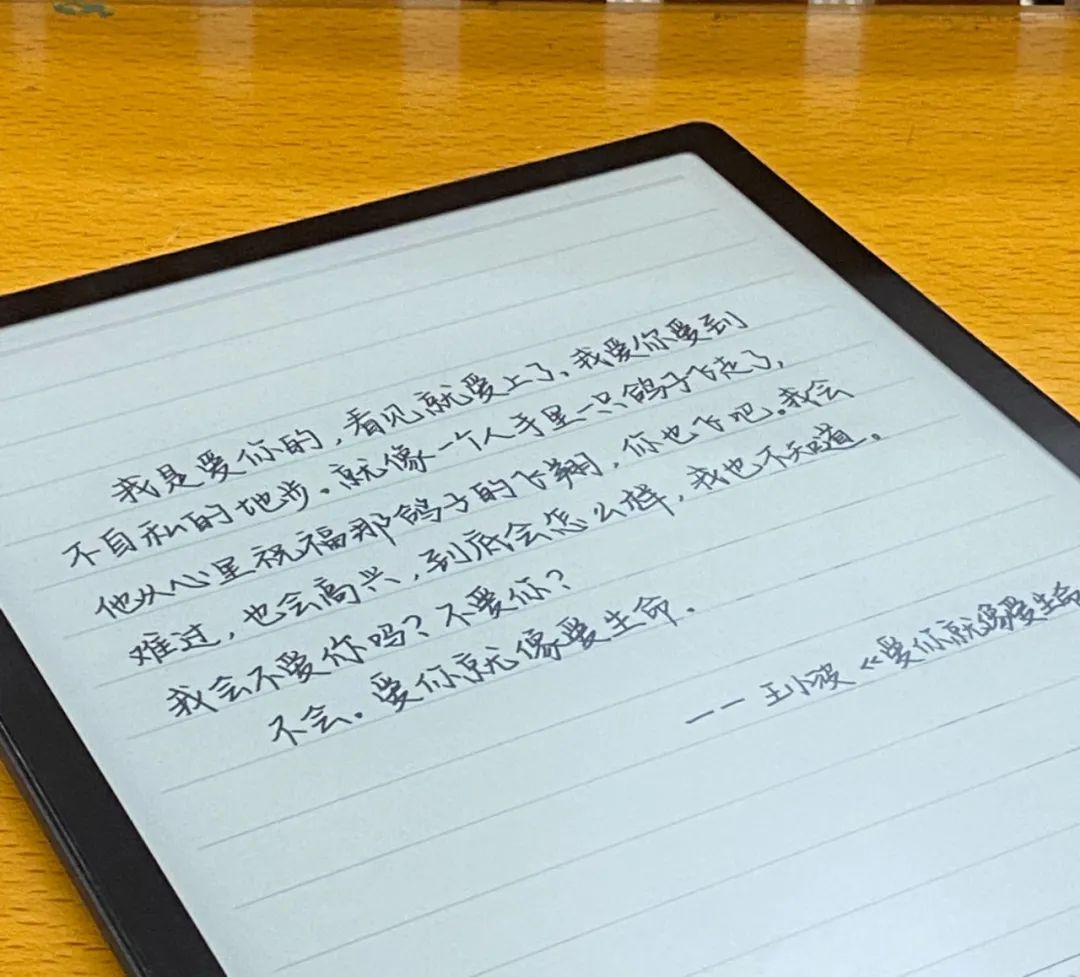 我是爱你的，看见就爱上了、我爱你爱到
不自私的地步。就像一个人手里一只鸽子飞走了，
他从心里祝福那鸽子的飞翔，你也飞吧。我会
难过，也会高兴，到底会怎么样，我也不知道。
我会不爱你吗？不爱你？
不会。爱你就像爱生命．
——王小波《爱你就像爱生命